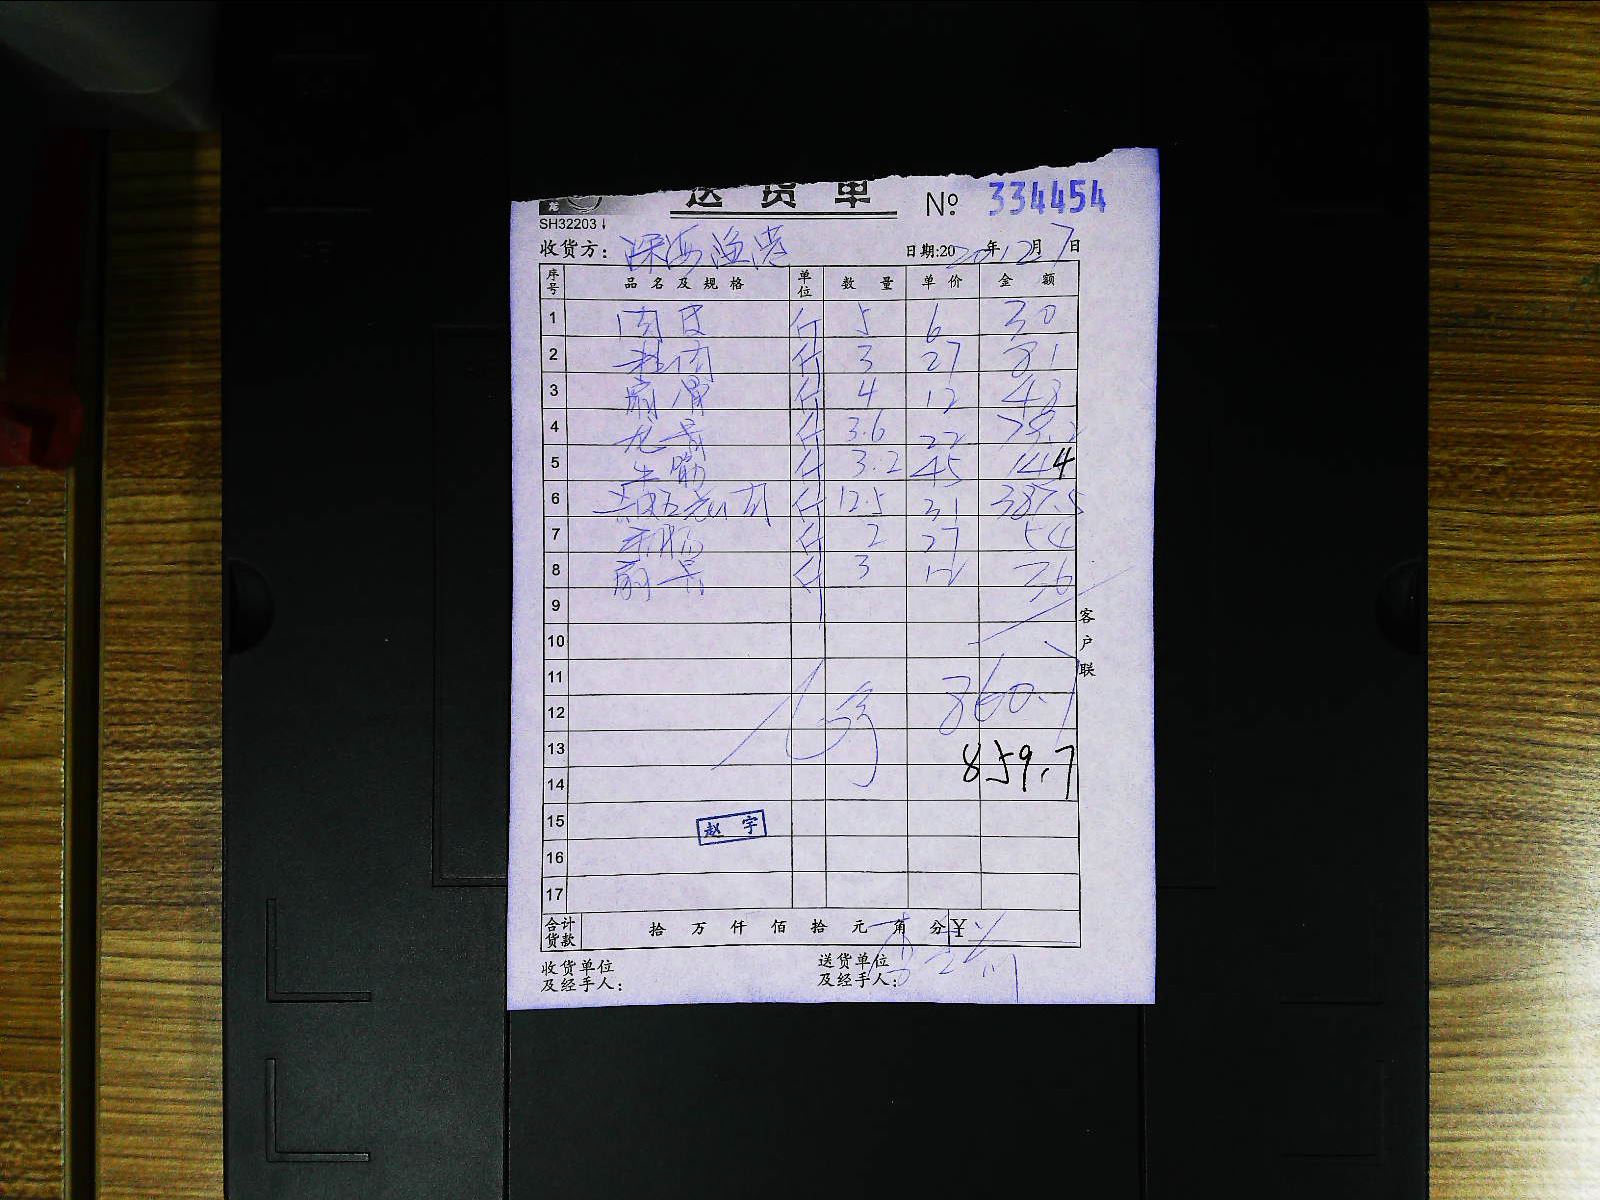 送货单 №. 334454
SH32203
收货方: 深海渔港 日期:2020年12月7日
序号 品名及规格 单位 数量 单价 金额
1 肉皮 斤 5 6 30
2 肉 斤 3 27 81
3 扇骨 斤 4 12 48
4 龙骨 斤 3.6 22 79.2
5 牛 斤 3.2 45 144
6 肉 斤 12.5 31 387.5
7 斤 2 27 54
8 扇骨 斤 3 12 36
9
10
11
12 860.7
13 859.7
14
15 赵宇
16
17
客户联
合计货款 拾 万 仟 佰 拾 元 角 分 ¥
收货单位及经手人: 送货单位及经手人: